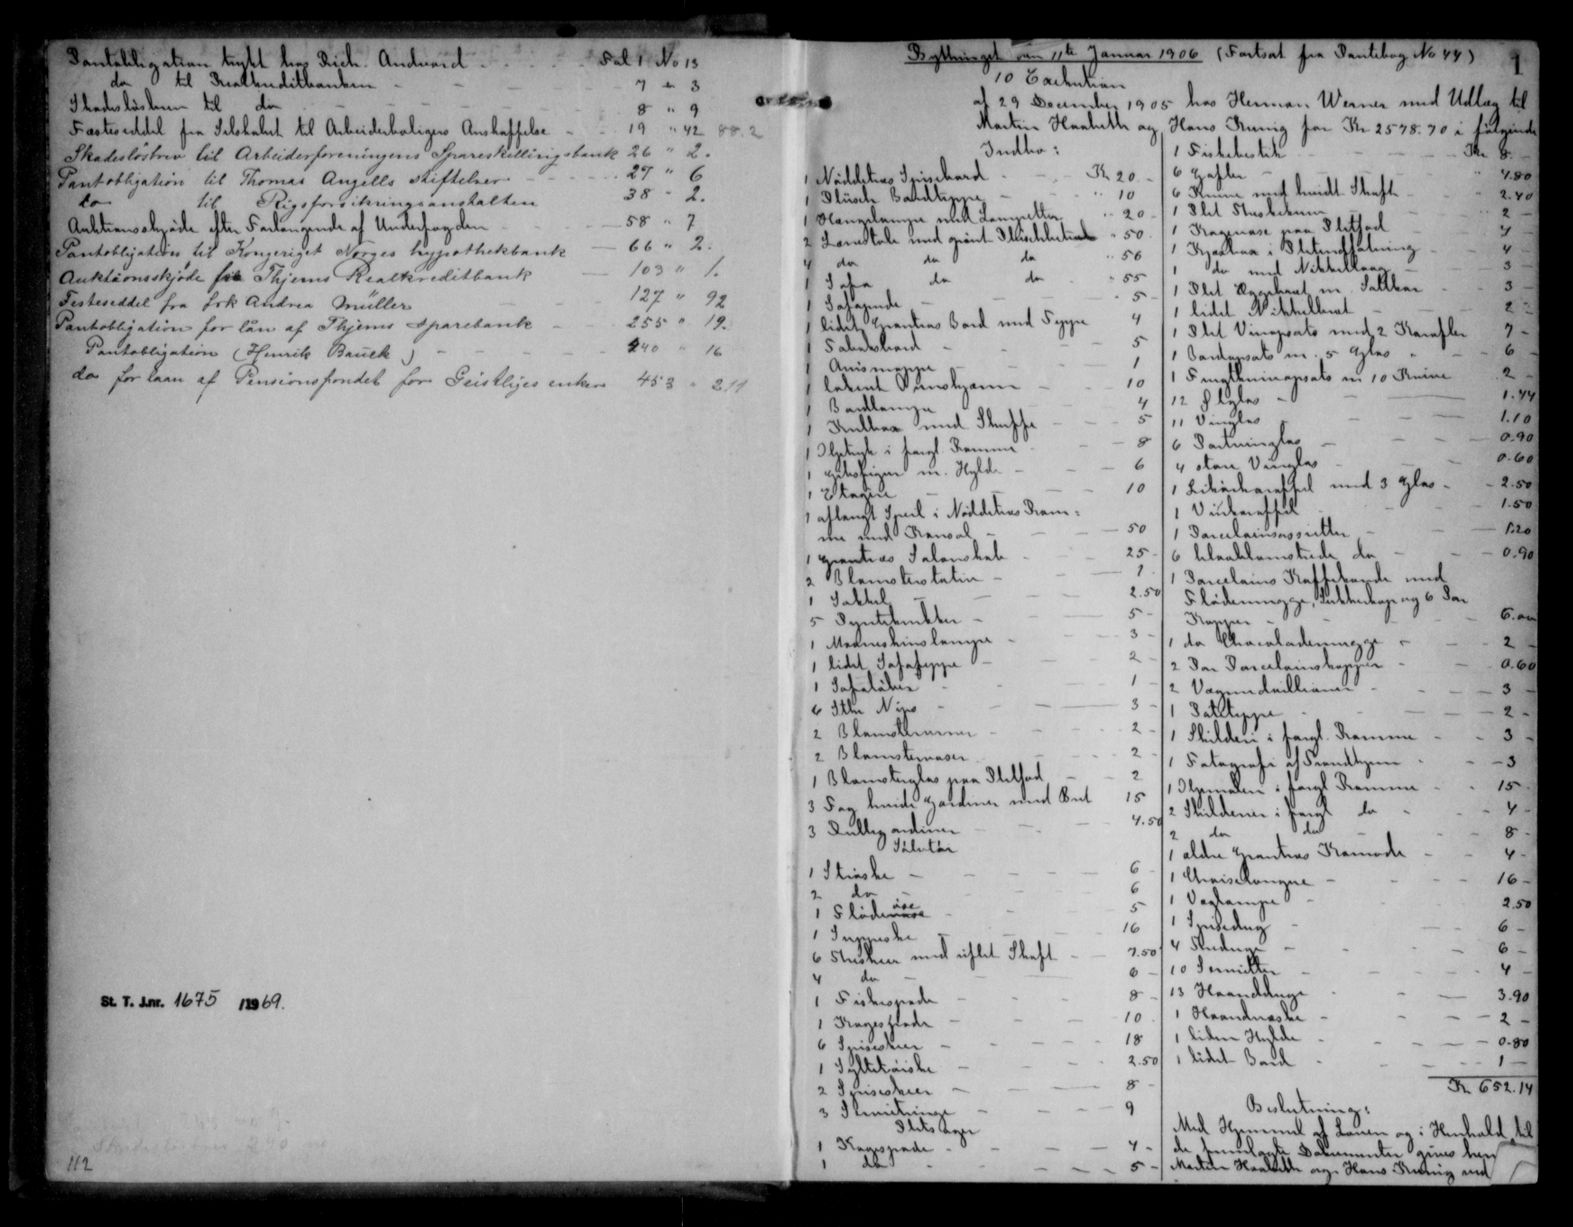 Pantobligation trykt hos Rich. Andvord - - - Fol 1 No 13
do til Realkreditbanken - - - - 7 " 3
Skadesløsbrev til do - - - 8 " 9
Fæsteseddel fra Selskabet til Arbeiderboligers Anskaffelse - - 19 " 42 88.2
Skadesløsbrev til Arbeiderforeningens Spareskillingsbank 26 " 2.
Pantobligation til Thomas Angells stiftelser - - - 27 " 6
do til Rigsforsikringsanstalten 38 " 2.
Auktionsskjøde efter Forlangende af Underfogden - - 58 " 7
Pantobligation til Kongeriget Norges hypothekbank - 66 " 2.
Auktionsskjøde fra Thjems Realkreditbank - 103 " 1.
Festeseddel fra frk Andrea Müller - - - 127 " 92
Pantobligation for lån af Thjems Sparebank - - 255 " 19.
Pantobligation (Henrik Bauck) - - - - 440 " 16
do for laan af Pensionsfondet for Geistliges enker 453 " 211
St. T. J.nr. 1675 /1969.
112
1
Bythinget den 11te Januar 1906 (Fortsat fra Pantebog No 44)
10 Exekution
af 29 December 1905 hos Herman Werner med Udlæg til
Martin Haabeth og Hans Krunig for Kr 2578.70 i følgende
Indbo:
1 Nøddetræs Spisebord - Kr 20 -
1 Plüsch Bordteppe - " 10
1 Hængelampe med Lampetter " 20 -
2 Lænestole med grønt Plüschbetræk " 50 -
4 do do do " 56
1 Sofa do do " 55
1 Sofapude - - - 5 -
1 lidet Grantræs Bord med Teppe 4
1 Salonbord - - - 5
1 Avismappe - - 1
1 lakeret Vinskjænn - - 10
1 Bordlampe - - 4
1 Kulkasse med Skuffe - - 5
1 Oljetryk i forgl. Ramme - - 8
1 Gibsfigur m. Hylde - - 6
1 Etagere - - - 10
1 aflangt Speil i Nøddetræs Ram=
me med Konsol - - - 50
1 Grantræs Salonskab - - 25 -
2 Blomsterstativ - - 1
1 Sokkel - - - 2.50
5 Pyntekrukker - - - 5 -
1 Maaneskinslampe - - 3 -
1 lidet Sofateppe - - 2 -
1 Sofaløber - - 1 -
6 Stkr Nips - - - 3 -
2 Blomsterurner - - - 2 -
2 Blomstervaser - - 2 -
1 Blomsterglas paa Pletfod - - 2
3 Fag hvide Gardiner med Bret 15
3 Rullegardiner - - - 4.50
Sølvtøi
1 Strøske - - - - 6 -
2 do - - - 6
1 Flødeøse - - - 5
1 Suppeske - - - 16
6 Theskeer med riflet Skaft - - 7.50
4 do - - - 6 -
1 Fiskespade - - - 8 -
1 Kagespade - - - 10
6 Spiseskeer - - - 18
1 Syltetøiske - - - 2.50
2 Spiseskeer - - - 8 -
3 Servietringe - - - 9
Pletsager
1 Kagespade - - - 4 -
1 do - - - 5 -
1 Fiskebestik - - - Kr 8 -
6 Gafler - - - 4.80
6 Knive med hvidt Skaft - - 2.40
1 Plet Theskekurv - - 2 -
1 Kagevase paa Pletfod - 4 -
1 Kjexkasse i Pletindfatning - 4 -
1 do med Nikkellaag - - 3 -
1 Plet Æggekost m. Saltkar - 3 -
1 lidet Nikkelbræt - - 2 -
1 Plet Vinopsats med 2 Karafler 7 -
1 Bordopsats m. 5 Glas - - 6 -
1 Frugtknivopsats m 10 Knive 2 -
12 Ølglas - - - 1.44
11 Vinglas - - - 1.10
6 Portvinglas - - - 0.90
4 store Vinglas - - - 0.60
1 Likørkaraffel med 3 Glas - - 2.50
1 Vinkaraffel - - - 1.50
1 Porcelainsassiette - - - 1.20
6 blaablomstrede do - - - 0.90
1 Porcelains Kaffekande med
Flødemugge, Sukkerkop og 6 Par
Kopper - - - 6.00
1 do Chocolademugge - - 2 -
2 Par Porcelainskopper - - 0.60
2 Vægmedaillioner - - - 3 -
1 Puteteppe - - - 2 -
1 Skilderi i forgl. Ramme - - 3 -
1 Fotografi af Trondhjem - - 3
1 Oljemaleri i forgl Ramme - - 15 -
2 Skilderier i forgl do - - 4 -
2 do do - - 8 -
1 ældre Grantræs Komode - - 4 -
1 Chaiselongue - - - 16 -
1 Væglampe - - - 2.50
1 Spisedug - - - 6 -
4 Theduge - - - 6 -
10 Servietter - - - 4 -
13 Haandduge - - - 3.90
1 Haandvæske - - - 2 -
1 liden Hylde - - - 0.80
1 lidet Bord - - - 1 -
Kr 652.14
Beslutning:
Med Hjemmel af Loven og i Henhold til
de fremlagte Dokumenter gives her
Martin Haabeth og Hans Krunig ved